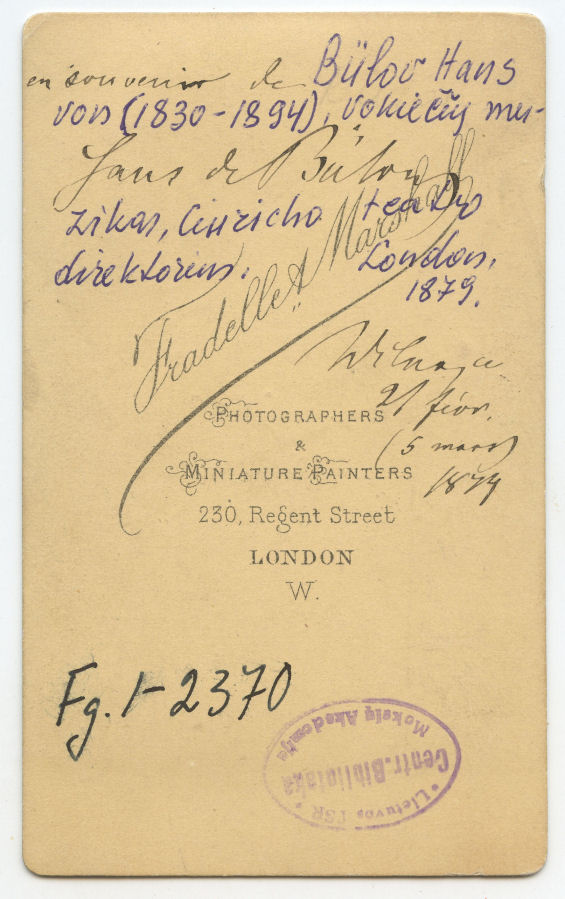 en souvenir de
Bülov Hans
von (1830-1894), vokiečių mu-
Hans de Bülow
zikas, Ciuricho teatro
direktorius.
London,
1879.
Fradelle & Marshall
Wilna, ce
21 févr.
(5 mars)
1879
PHOTOGRAPHERS
&
MINIATURE PAINTERS
230, Regent Street
LONDON
W.
Fg. 1-2370
Lietuvos TSR
Mokslų Akademija
Centr. Biblioteka